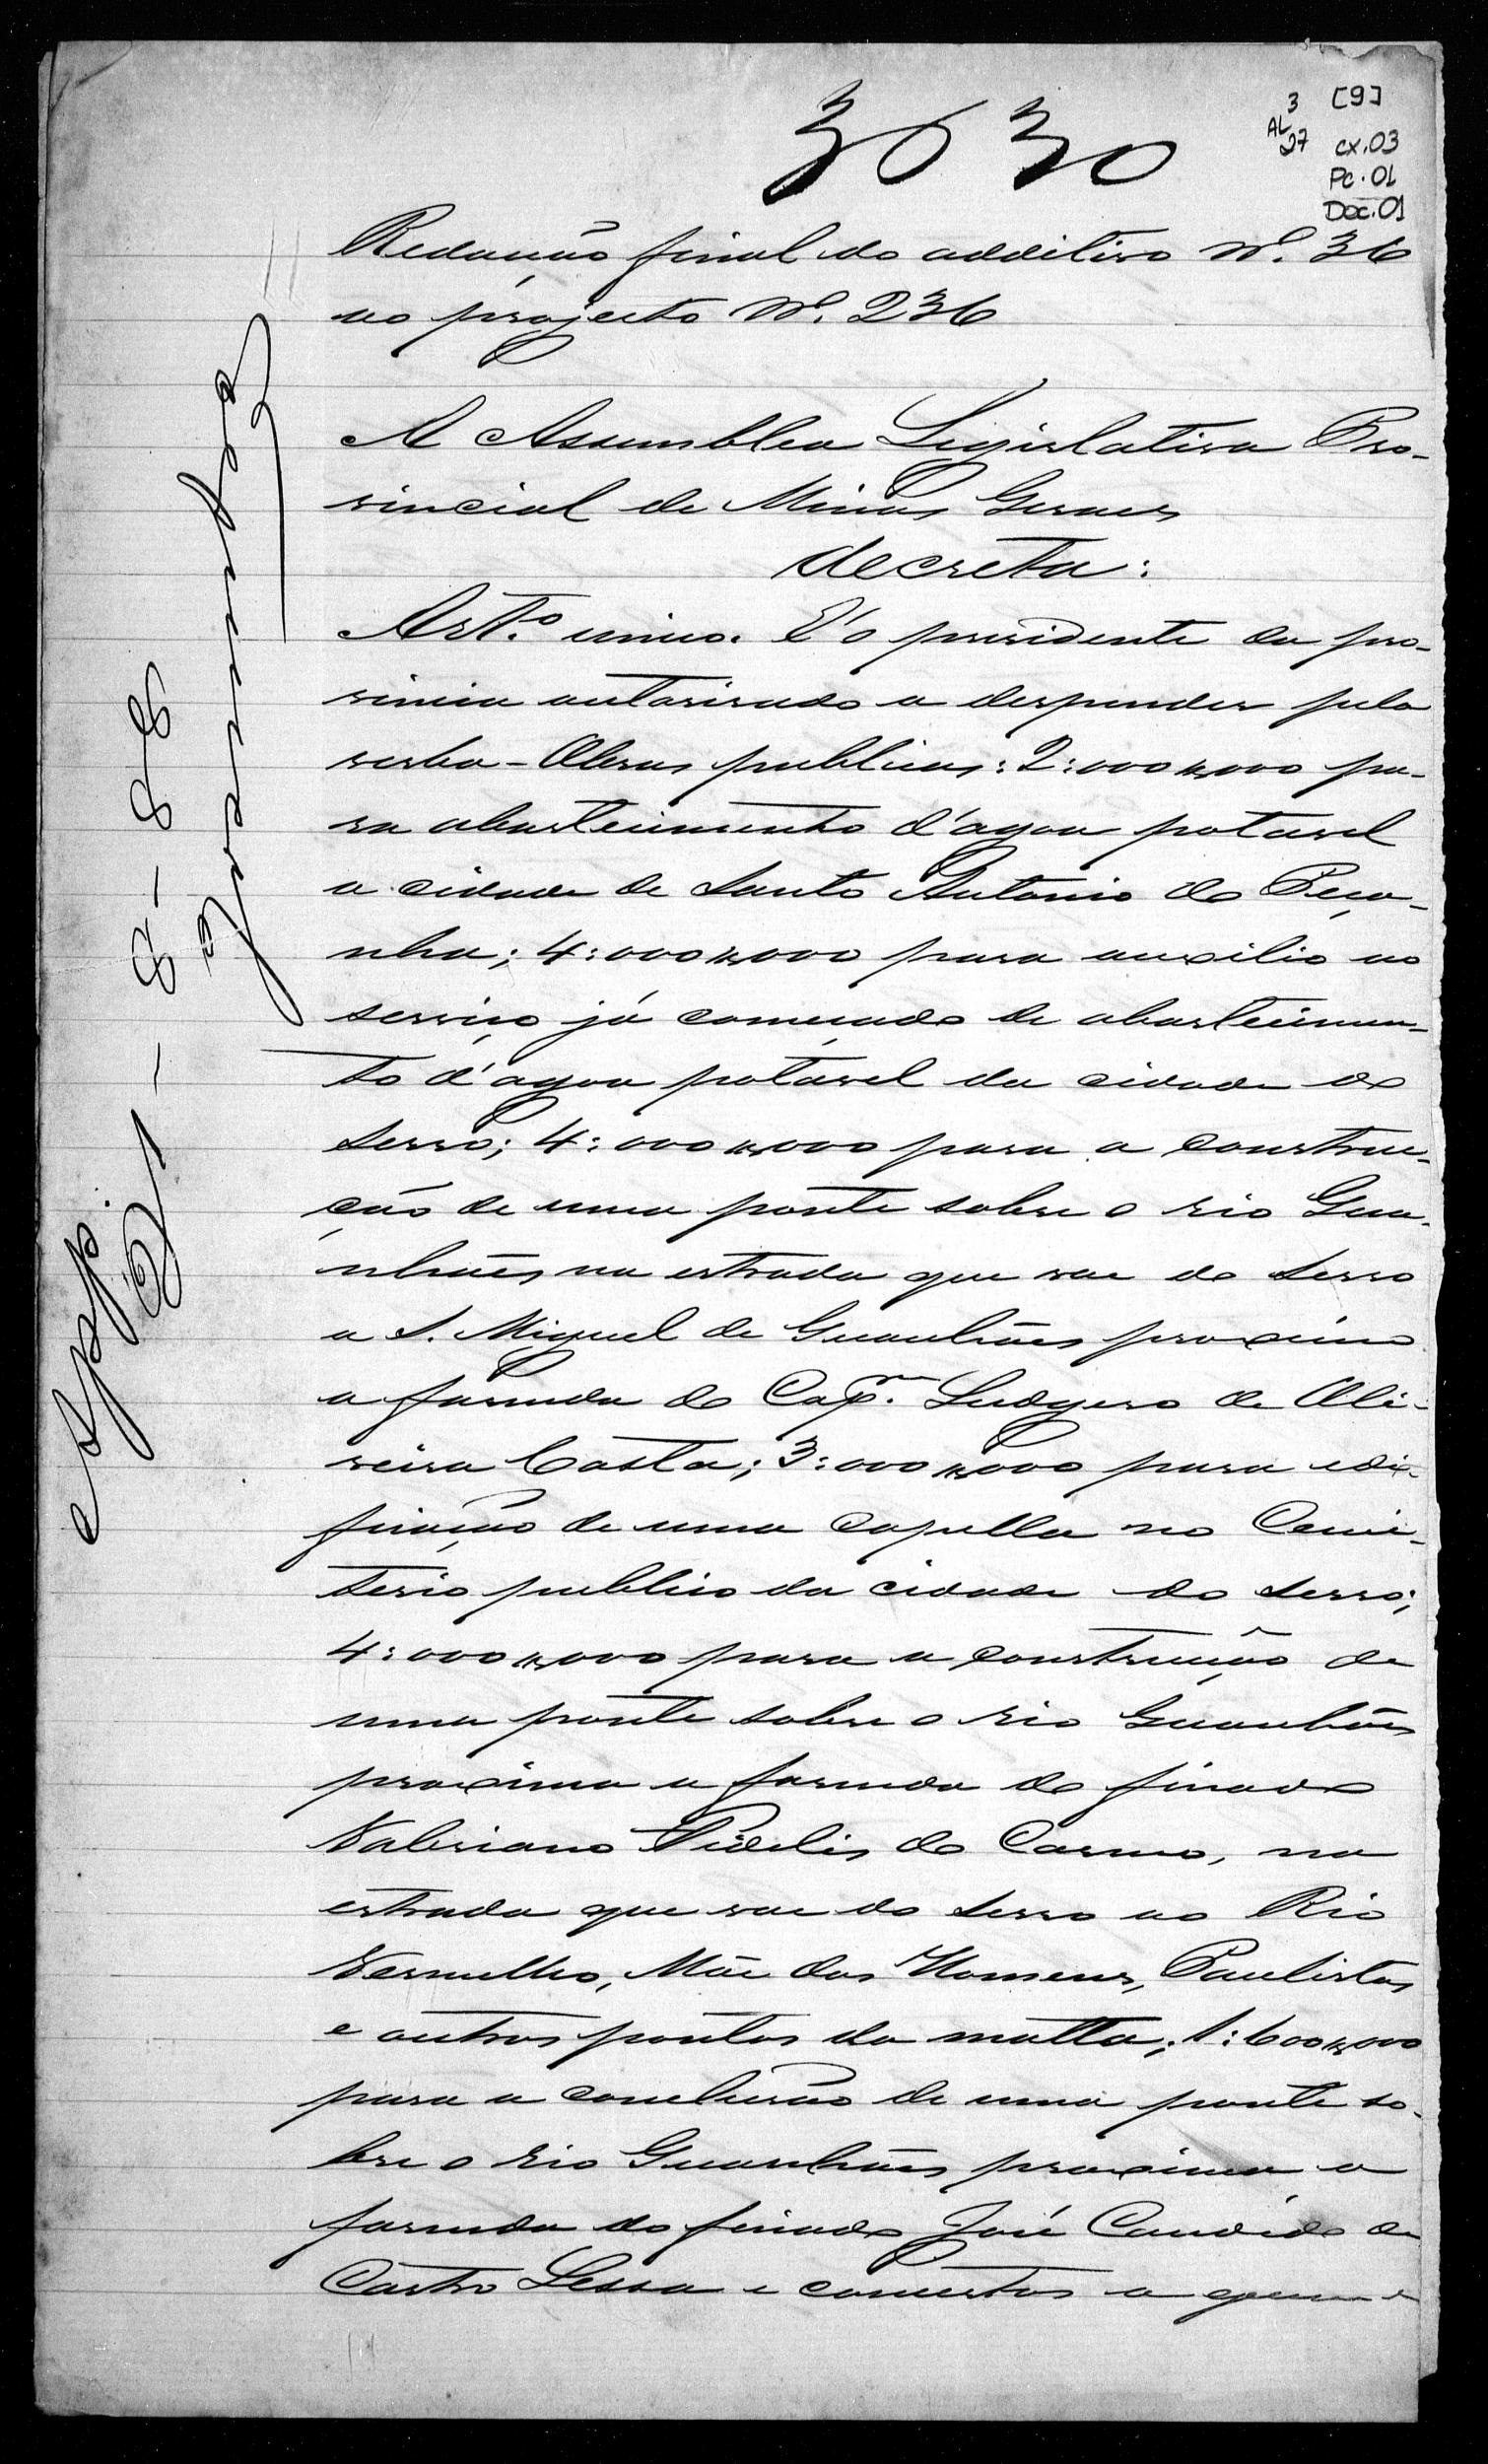 3030
3 [9]
AL
27 cx.03
Pc.01
Doc.01
Redacção final do additivo Nº. 36
ao projecto Nº. 236
A Assemblea Legislativa Pro-
vincial de Minas Geraes
decreta:
Art.º unico. É o presidente da pro-
vincia autorisado a despender pela
verba - Obras publicas: 2:000$000 pa-
ra abastecimento d'agoa potavel
a cidade de Santo Antonio do Peça-
nha; 4:000$000 para auxilio ao
serviço já começado de abastecimen-
to d'agoa potavel da cidade do
Serro; 4:000$000 para a construc-
ção de uma ponte sobre o rio Gua-
nhães na estrada que vae do Serro
a S. Miguel de Guanhães proximo
a fasenda do Capm. Ludgero de Oli-
veira Costa; 3:000$000 para edi-
ficação de uma capella no Cemi-
terio publico da cidade do Serro;
4:000$000 para a construcção de
uma ponte sobre o rio Guanhães
proxima a fasenda do finado
Valeriano Fidelis do Carmo, na
estrada que vae do Serro ao Rio
Vermelho, Mãe dos Homens, Paulistas
e outros pontos da matta; 1:600$000
para a conclusão de uma ponte so-
bre o rio Guanhães proxima a
fasenda do finado José Candido de
Castro Lessa e concertos a que
App.
21 - 8 - 88